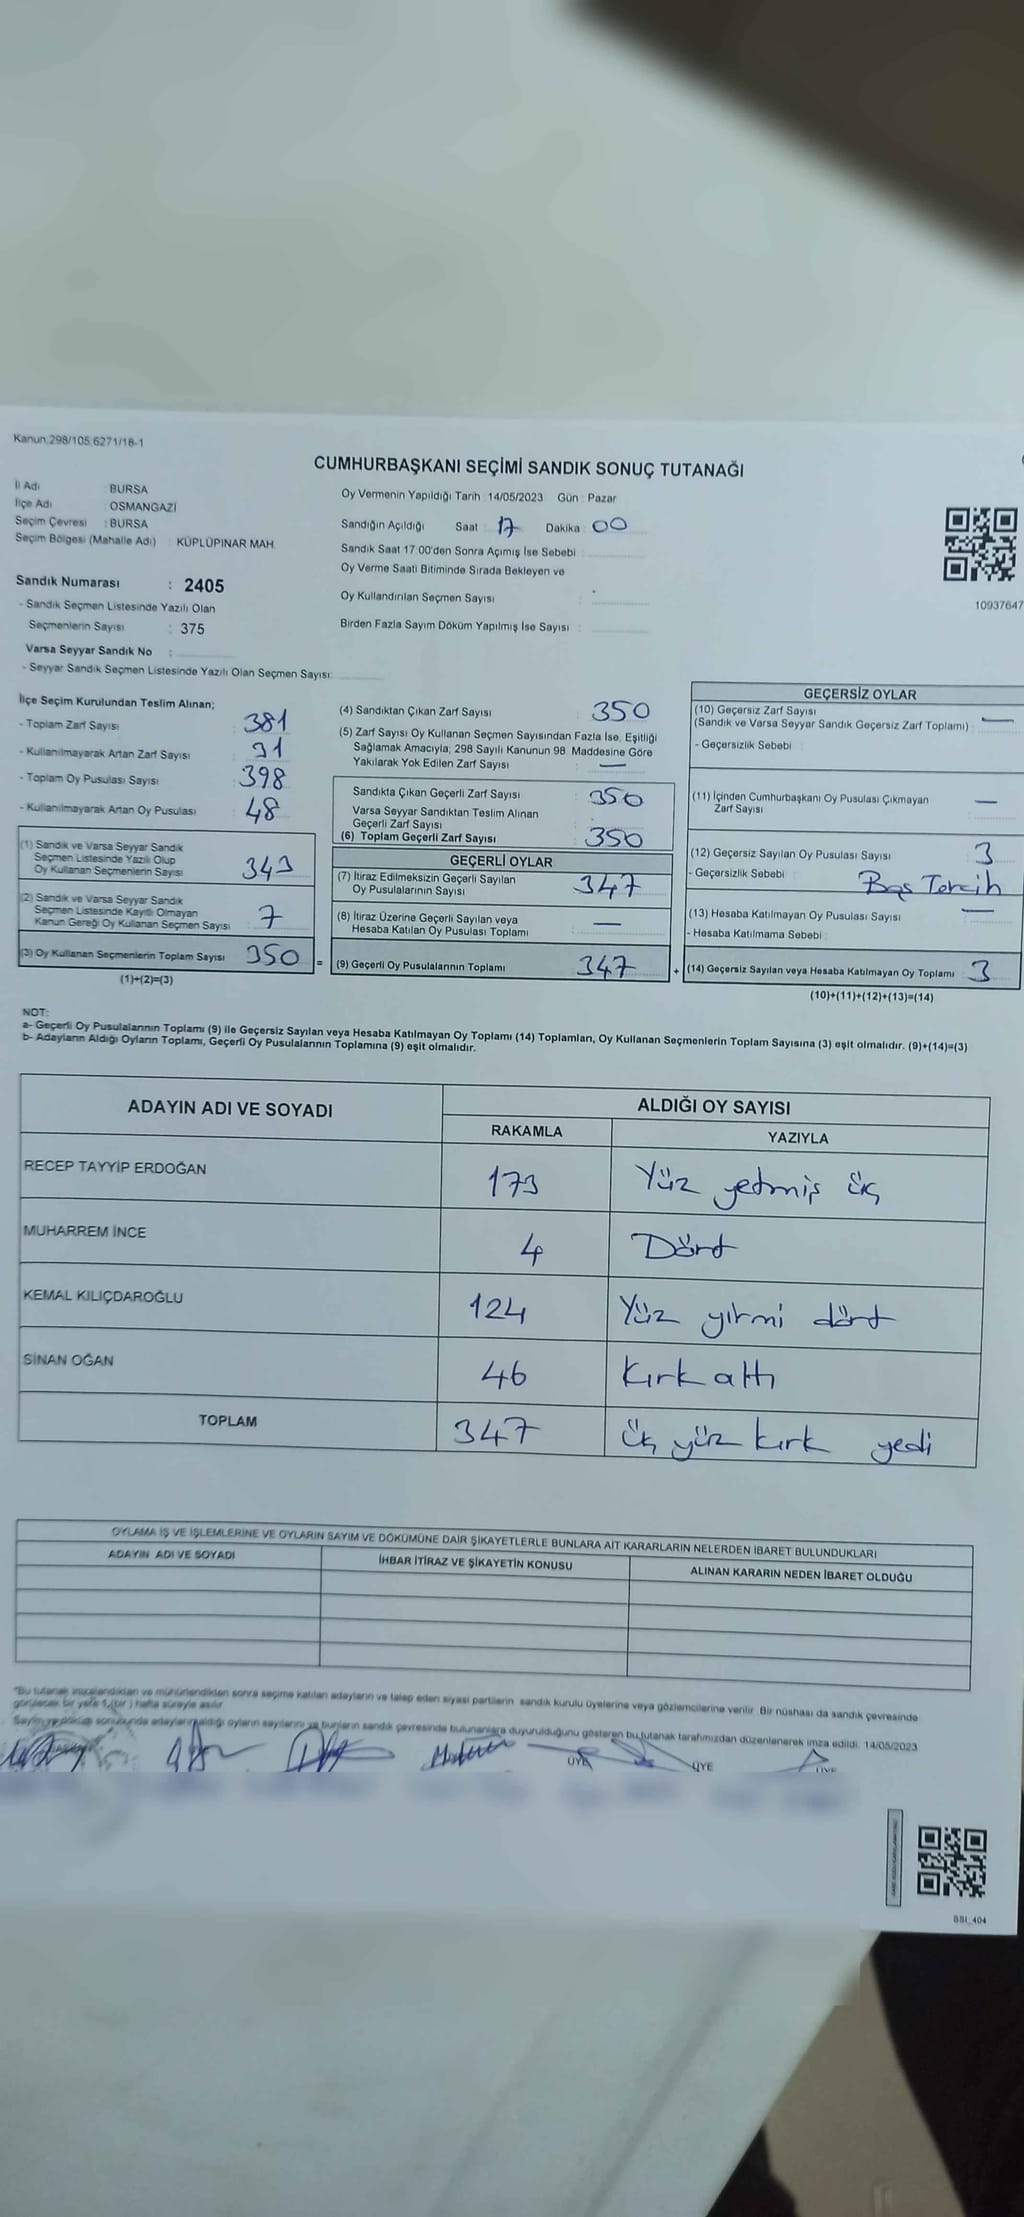 Kanun:298/105,6271/18-1
CUMHURBAŞKANI SEÇİMİ SANDIK SONUÇ TUTANAĞI
İl Adı : BURSA
İlçe Adı : OSMANGAZİ
Seçim Çevresi : BURSA
Seçim Bölgesi (Mahalle Adı) : KÜPLÜPINAR MAH.
Oy Vermenin Yapıldığı Tarih : 14/05/2023 Gün : Pazar
Sandığın Açıldığı Saat : 17 Dakika : 00
Sandık Saat 17:00'den Sonra Açımış İse Sebebi :
Oy Verme Saati Bitiminde Sırada Bekleyen ve
Oy Kullandırılan Seçmen Sayısı :
Birden Fazla Sayım Döküm Yapılmış İse Sayısı :
10937647
Sandık Numarası : 2405
- Sandık Seçmen Listesinde Yazılı Olan
Seçmenlerin Sayısı : 375
Varsa Seyyar Sandık No :
- Seyyar Sandık Seçmen Listesinde Yazılı Olan Seçmen Sayısı:
İlçe Seçim Kurulundan Teslim Alınan;
- Toplam Zarf Sayısı : 381
- Kullanılmayarak Artan Zarf Sayısı : 31
- Toplam Oy Pusulası Sayısı : 398
- Kullanılmayarak Artan Oy Pusulası : 48
(1) Sandık ve Varsa Seyyar Sandık
Seçmen Listesinde Yazılı Olup
Oy Kullanan Seçmenlerin Sayısı 343
(2) Sandık ve Varsa Seyyar Sandık
Seçmen Listesinde Kayıtlı Olmayan
Kanun Gereği Oy Kullanan Seçmen Sayısı 7
(3) Oy Kullanan Seçmenlerin Toplam Sayısı 350
(1)+(2)=(3)
(4) Sandıktan Çıkan Zarf Sayısı : 350
(5) Zarf Sayısı Oy Kullanan Seçmen Sayısından Fazla İse, Eşitliği
Sağlamak Amacıyla; 298 Sayılı Kanunun 98. Maddesine Göre
Yakılarak Yok Edilen Zarf Sayısı : —
Sandıkta Çıkan Geçerli Zarf Sayısı : 350
Varsa Seyyar Sandıktan Teslim Alınan
Geçerli Zarf Sayısı :
(6) Toplam Geçerli Zarf Sayısı : 350
GEÇERLİ OYLAR
(7) İtiraz Edilmeksizin Geçerli Sayılan
Oy Pusulalarının Sayısı 347
(8) İtiraz Üzerine Geçerli Sayılan veya
Hesaba Katılan Oy Pusulası Toplamı —
= (9) Geçerli Oy Pusulalarının Toplamı 347
GEÇERSİZ OYLAR
(10) Geçersiz Zarf Sayısı
(Sandık ve Varsa Seyyar Sandık Geçersiz Zarf Toplamı) : —
- Geçersizlik Sebebi :
(11) İçinden Cumhurbaşkanı Oy Pusulası Çıkmayan
Zarf Sayısı —
(12) Geçersiz Sayılan Oy Pusulası Sayısı : 3
- Geçersizlik Sebebi : Boş Tercih
(13) Hesaba Katılmayan Oy Pusulası Sayısı : —
- Hesaba Katılmama Sebebi :
+ (14) Geçersiz Sayılan veya Hesaba Katılmayan Oy Toplamı 3
(10)+(11)+(12)+(13)=(14)
NOT:
a- Geçerli Oy Pusulalarının Toplamı (9) ile Geçersiz Sayılan veya Hesaba Katılmayan Oy Toplamı (14) Toplamları, Oy Kullanan Seçmenlerin Toplam Sayısına (3) eşit olmalıdır. (9)+(14)=(3)
b- Adayların Aldığı Oyların Toplamı, Geçerli Oy Pusulalarının Toplamına (9) eşit olmalıdır.
ADAYIN ADI VE SOYADI ALDIĞI OY SAYISI
RAKAMLA YAZIYLA
RECEP TAYYİP ERDOĞAN 173 Yüz yetmiş üç
MUHARREM İNCE 4 Dört
KEMAL KILIÇDAROĞLU 124 Yüz yirmi dört
SİNAN OĞAN 46 Kırk altı
TOPLAM 347 Üç yüz kırk yedi
OYLAMA İŞ VE İŞLEMLERİNE VE OYLARIN SAYIM VE DÖKÜMÜNE DAİR ŞİKAYETLERLE BUNLARA AİT KARARLARIN NELERDEN İBARET BULUNDUKLARI
ADAYIN ADI VE SOYADI İHBAR İTİRAZ VE ŞİKAYETİN KONUSU ALINAN KARARIN NEDEN İBARET OLDUĞU
*Bu tutanak imzalandıktan ve mühürlendikten sonra seçime katılan adayların ve talep eden siyasi partilerin sandık kurulu üyelerine veya gözlemcilerine verilir. Bir nüshası da sandık çevresinde
görülecek bir yere 1 (bir) hafta süreyle asılır.
Sayım ve döküm sonucunda adayların aldığı oyların sayılarını ve bunların sandık çevresinde bulunanlara duyurulduğunu gösteren bu tutanak tarafımızdan düzenlenerek imza edildi. 14/05/2023
ÜYE ÜYE ÜYE
SSI_404